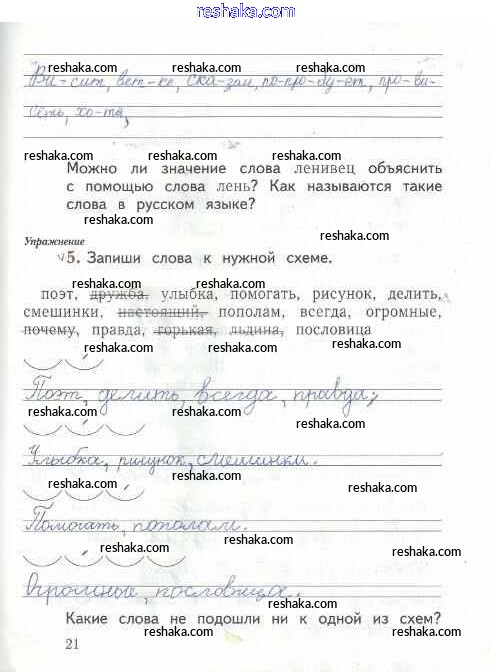 reshaka.com
reshaka.com reshaka.com reshaka.com
Ви-сит, вет-ке, ска-зал, по-про-бу-ет, про-ви-
reshaka.com reshaka.com reshaka.com
сеть, хо-тя,
reshaka.com reshaka.com
Можно ли значение слова ленивец объяснить
reshaka.com reshaka.com
с помощью слова лень? Как называются такие
слова в русском языке?
reshaka.com reshaka.com
Упражнение
√5. Запиши слова к нужной схеме.
reshaka.com reshaka.com
поэт, дружба, улыбка, помогать, рисунок, делить,
reshaka.com reshaka.com
смешинки, настоящий, пополам, всегда, огромные,
почему, правда, горькая, льдина, пословица
reshaka.com reshaka.com
reshaka.com
Поэт, делить, всегда, правда;
reshaka.com reshaka.com
reshaka.com
Улыбка, рисунок, смешинки.
reshaka.com
reshaka.com reshaka.com
Помогать, пополам.
reshaka.com reshaka.com
reshaka.com
reshaka.com
Огромные, пословица.
reshaka.com reshaka.com
Какие слова не подошли ни к одной из схем?
reshaka.com reshaka.com
21